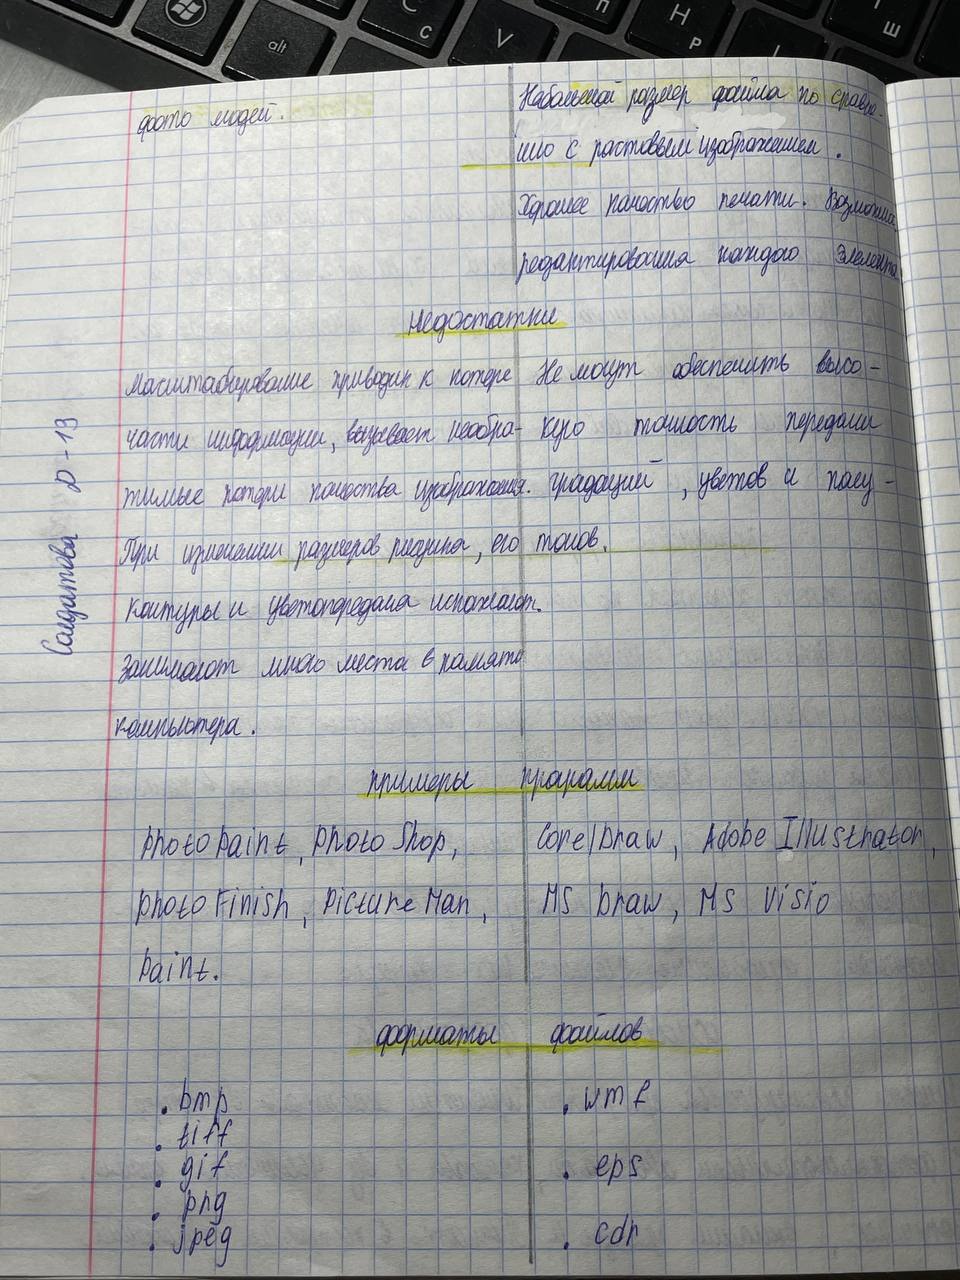 фото людей.
Небольшой размер файла по сравне-
нию с растовым изображением.
Хорошее качество печати. Возможна
редактирования каждого элемента
Недостатки
Масштабирование приводик к потере
части информации, вызывает необра-
тимые потери качества изображения.
При изменении размеров рисунка, его
контуры и цветопередача искажают.
Занимают много места в памяти
компьютера.
Не могут обеспечить высо-
кую точность передачи
градаций, цветов и полу-
тонов.
Салдатова Д-13
примеры программ
photo paint, photo Shop,
photo Finish, Picture Man,
paint.
Corel Draw, Adobe Illustrator,
MS Draw, MS Visio
форматы файлов
. bmp
. tiff
. gif
. png
. jpeg
. wmf
. eps
. cdr
alt
C
V
П
Н
Р
Ш